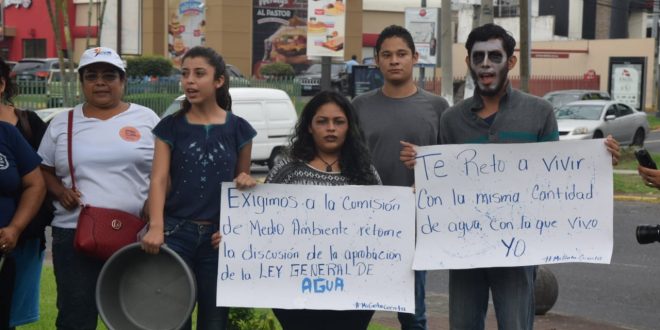 AL PASTOR
Exigimos a la Comisión
de Medio Ambiente retome
la discusión de la aprobación
de la LEY GENERAL DE
AGUA
Te Reto a Vivir
con la misma Cantidad
de agua, con la que vivo
YO